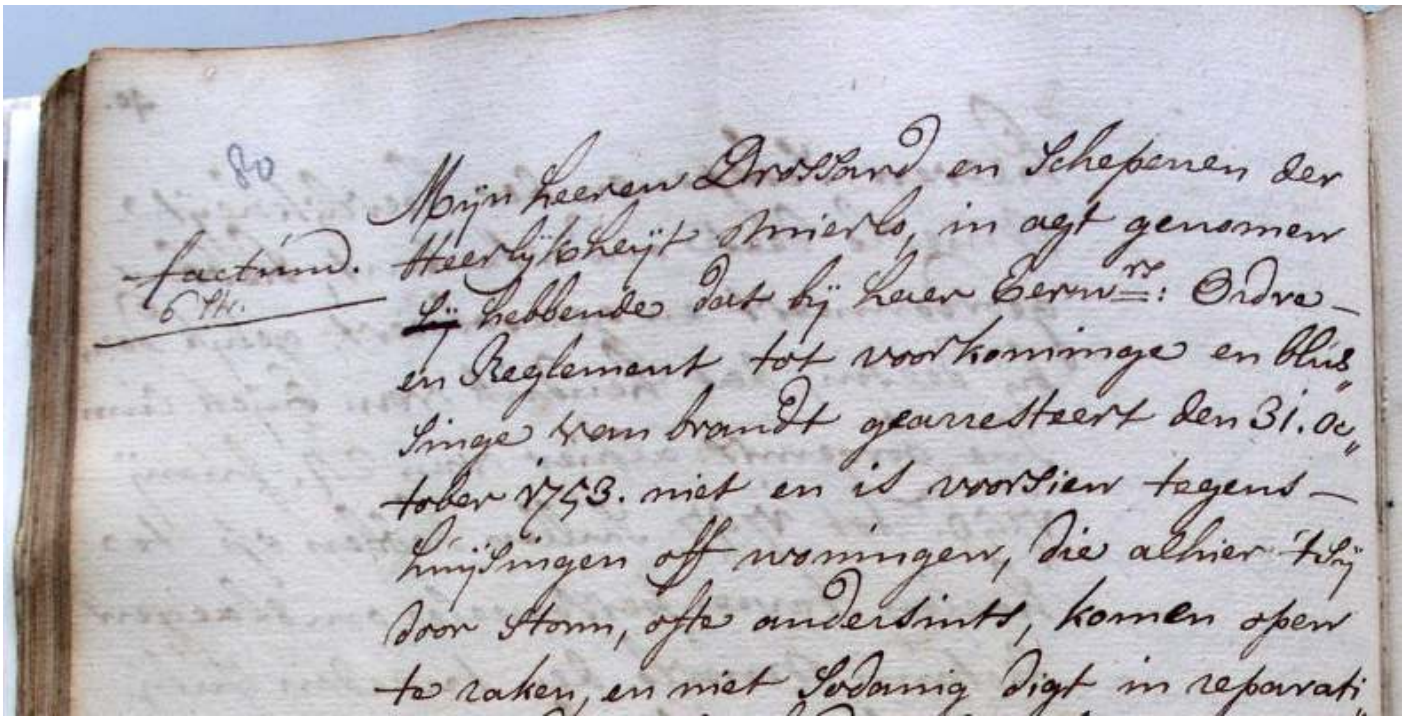 80
factum.
6 str.
Mijn heeren Drossard en Schepenen der
Heerlijkheijt Mierlo, in agt genomen
hebbende dat bij haer Eerw:rs: Ordre
en Reglement tot voorkominge en blus„
singe van brandt gearresteert den 31. oc„
tober 1753. niet en is voorsien tegens
huijsingen off woningen, die alhier 't sij
door storm, ofte andersints, komen open
te raken, en niet sodanig digt in reparati„